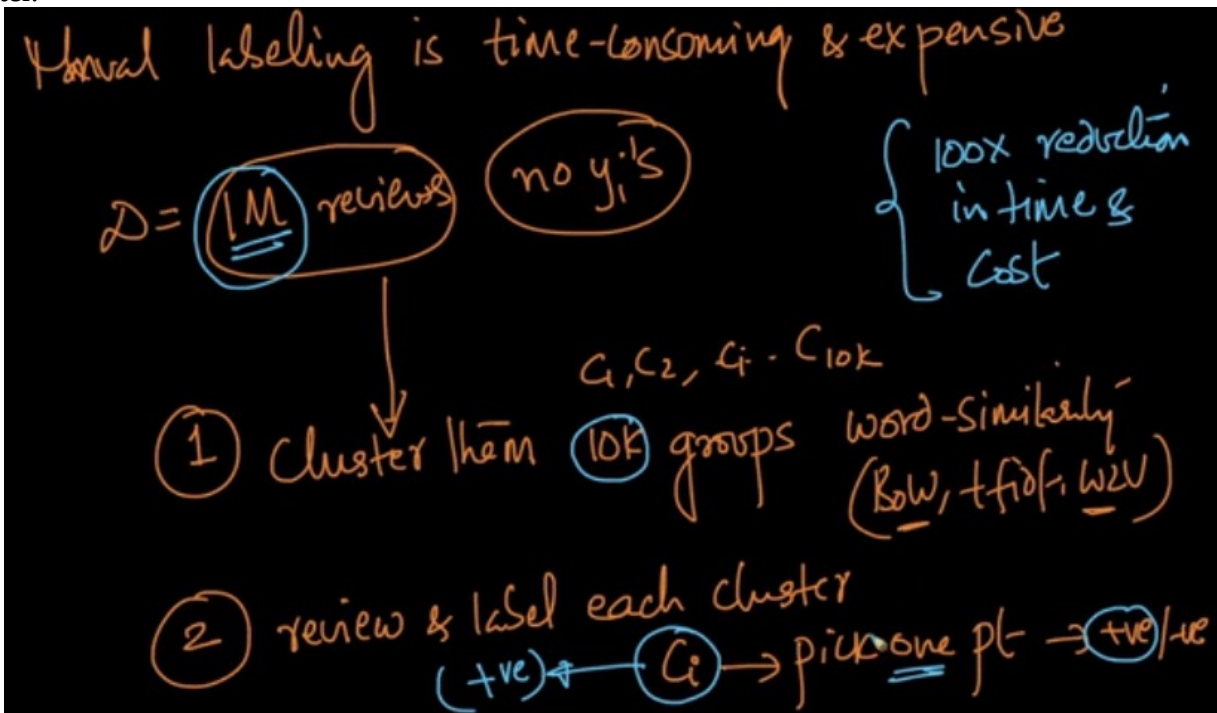 Manual labeling is time-consoming & expensive
D = 1M reviews no yi's
{ 100x reduction
in time &
cost
C1, C2, Ci .. C10K
1 Cluster them 10K groups word-similarity
(BoW, tfidf, W2V)
2 review & label each cluster
(+ve) ← Ci → pick one pt → +ve/-ve